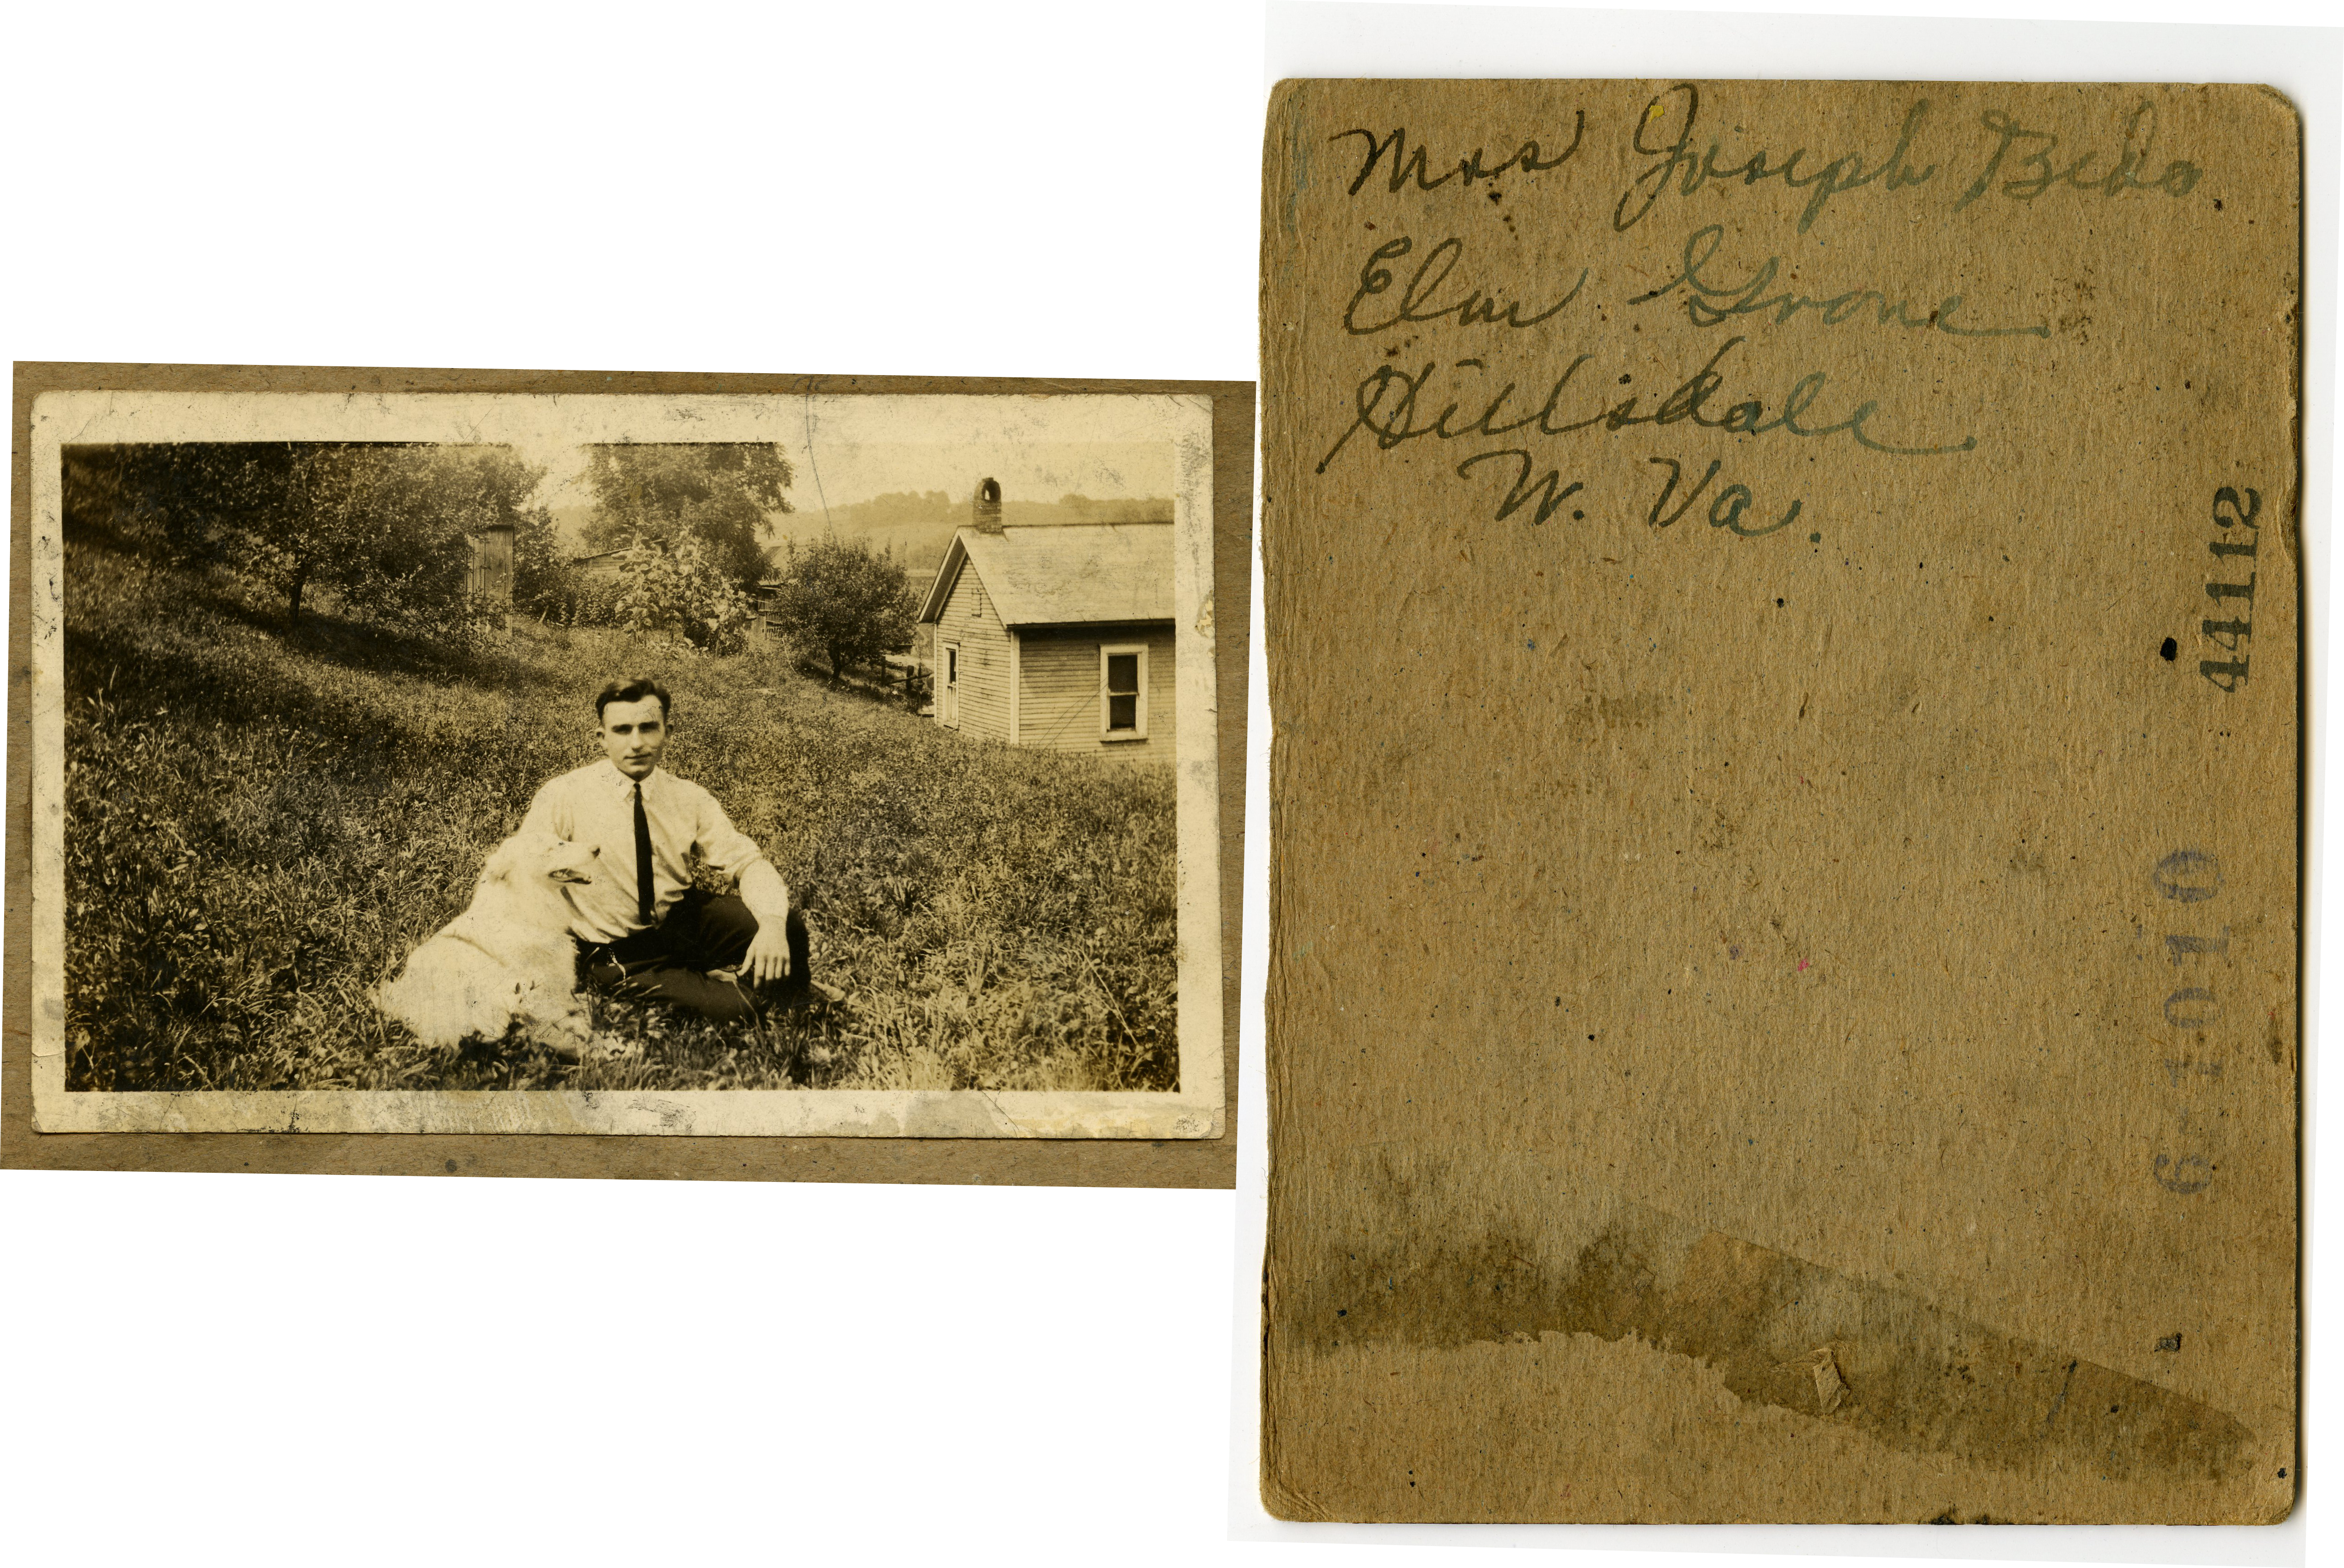 Mrs Joseph Bebo
Elm Grove
Hillsdale
W. Va.
44112
6-1010